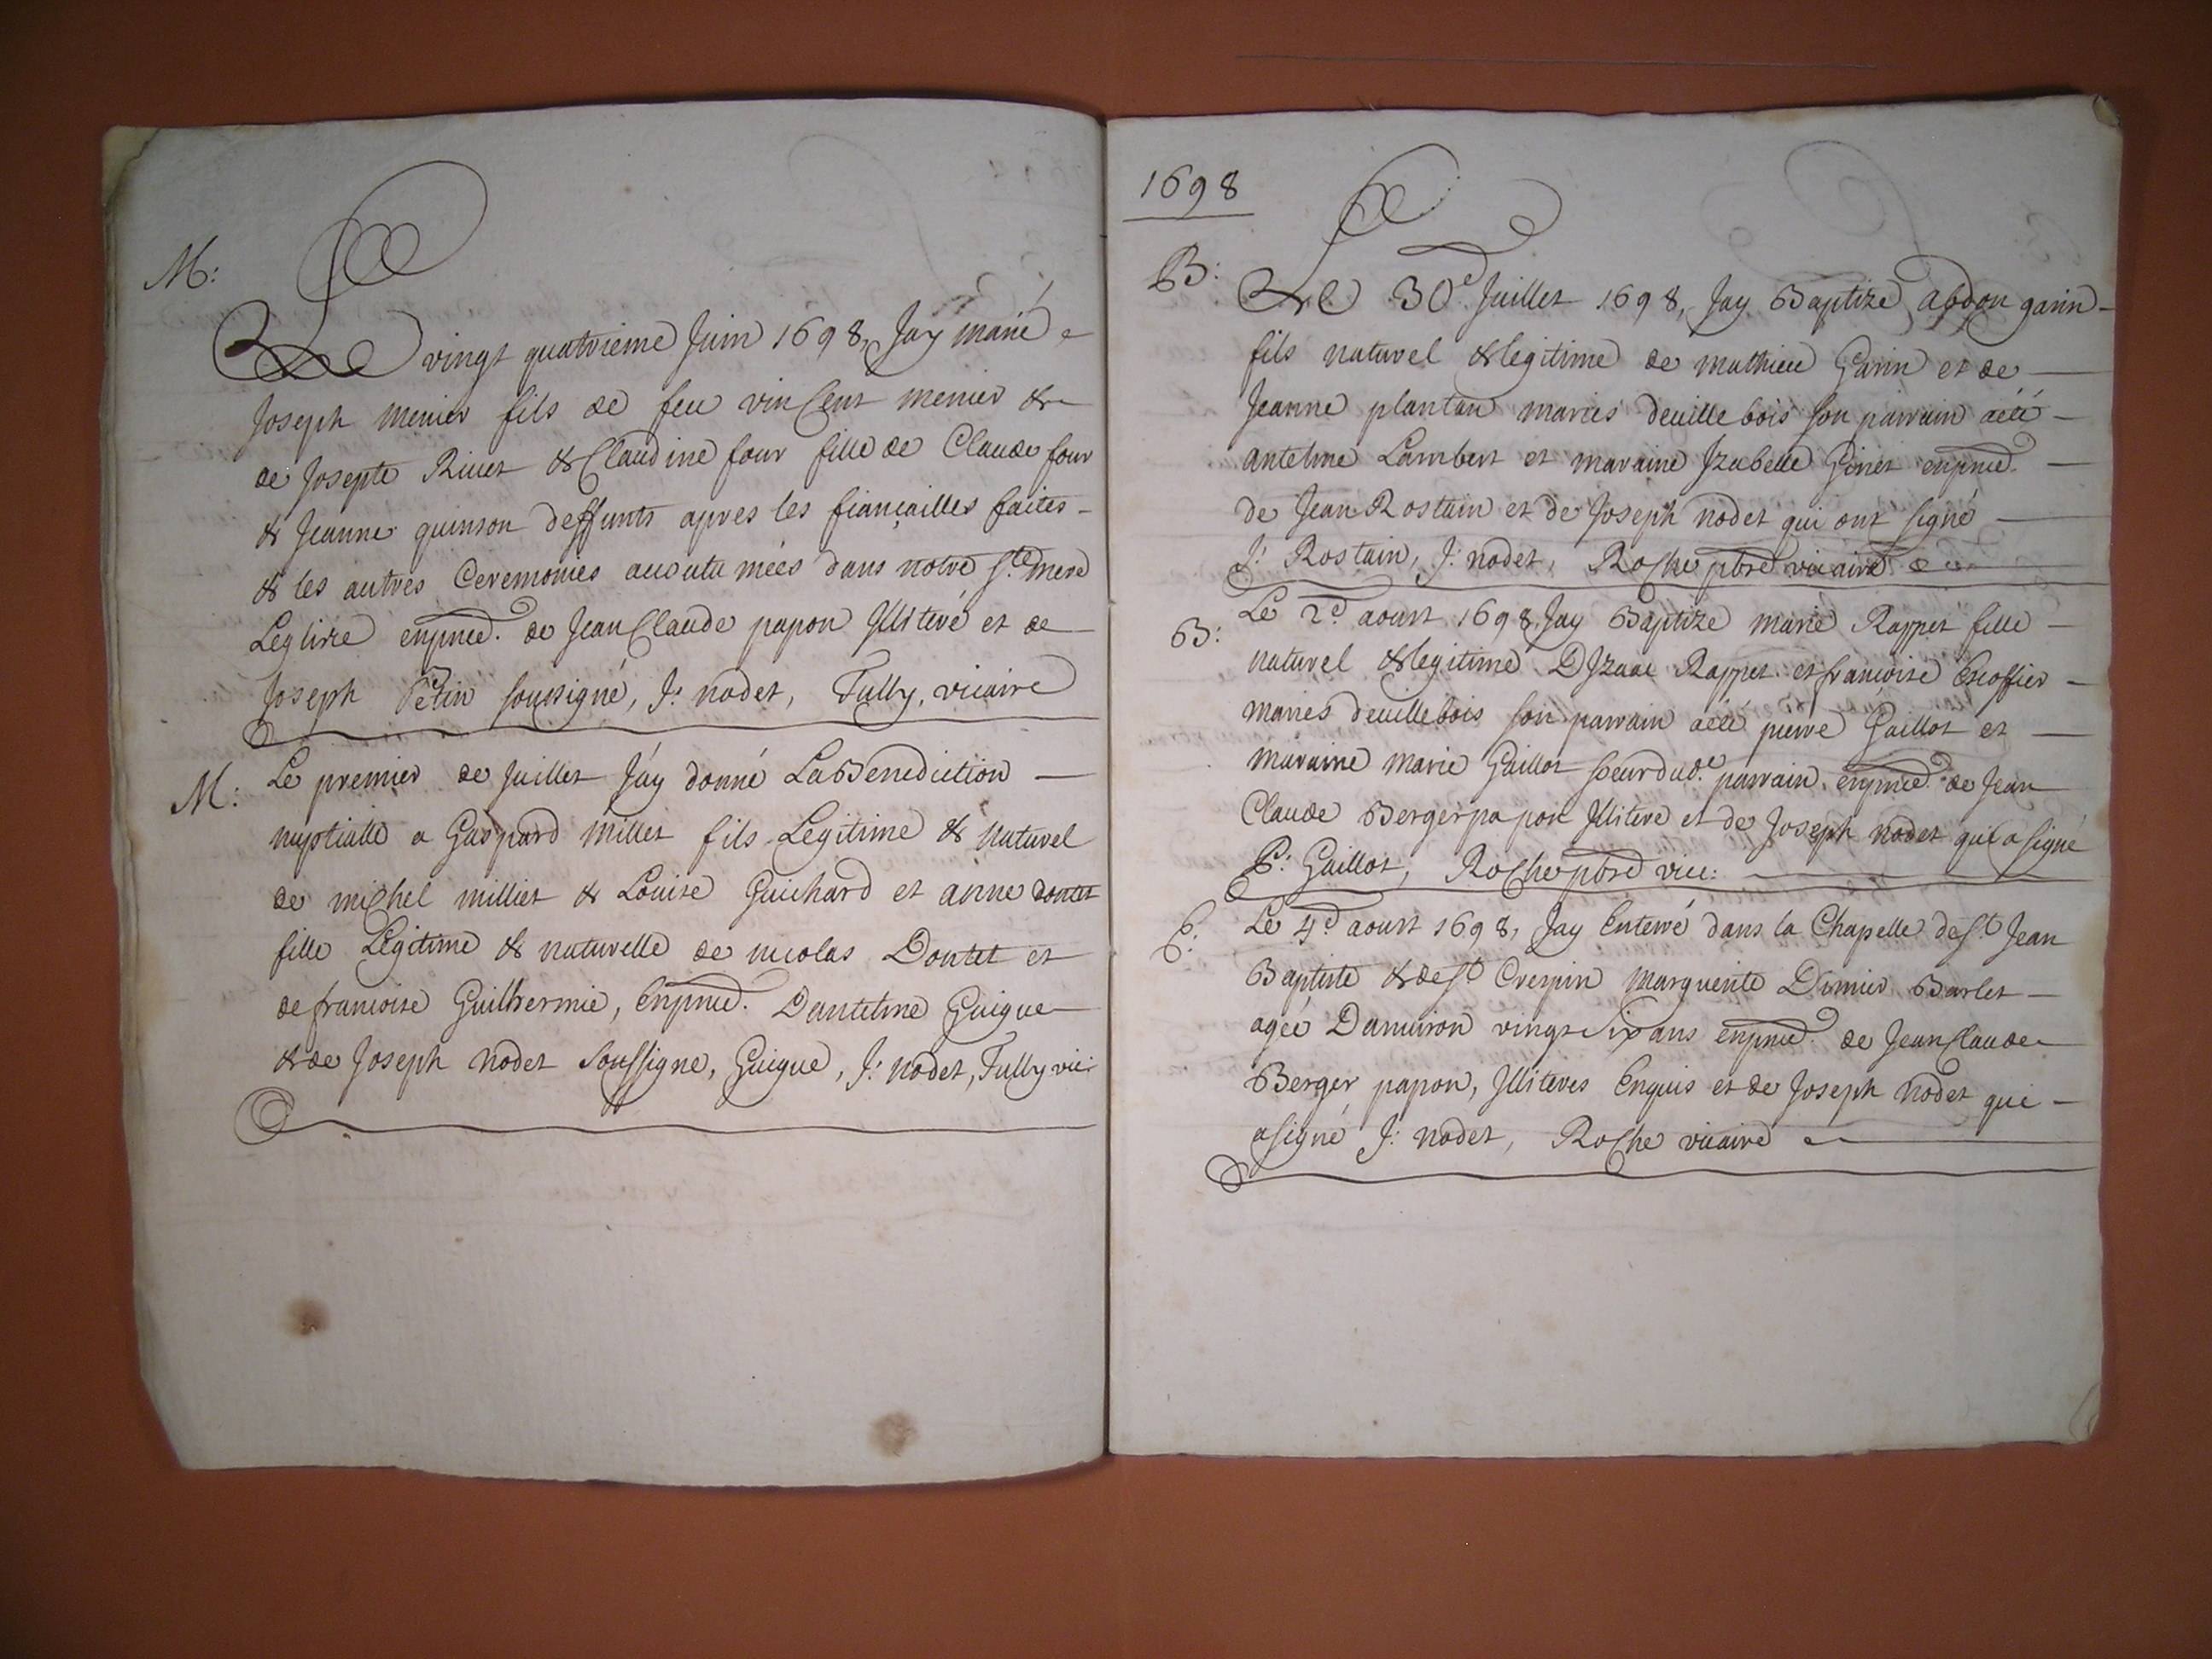 M:
Le vingt quatrieme Juin 1698, Jay marié
Joseph menier fils de feu vincent menier &
de Josepte Rivet & Claudine four fille de Claude four
& Jeanne quinson deffunts apres les fiançailles faites
& les autres Ceremonies acoutumées dans notre Ste mere
Leglize enpnce. de Jean Claude papon Illiteré et de
Joseph Pétin soussigné, J: nodet, Tully, vicaire
M: Le premier de Juillet Jáy donné La Benediction
nuptialle a Gaspard millet fils Legitime & naturel
de michel milliet & Louise Guichard et anne dontet
fille Legitime & naturelle de nicolas Dontet et
de francoise Guilhermie, Enpnce. Dantelme Guigue
& de Joseph nodet Soussigne, Guigue, J: nodet, Tully vic:
1698
B: Le 30e Juillet 1698, Jay Baptize Abdon garin
fils naturel & legitime de mathieu Garin et de
Jeanne plantan mariés deuillebois son parrain aété
antelme Lambert et maraine Izabelle Ginet enpnce.
de Jean Rostain et de Joseph nodet qui ont signé
J: Rostain, J: nodet, Roche pbre vicaire
B: Le 2d aoust 1698, Jay Baptize marie Rappet fille
naturel & legitime DIzaac Rappet et francoise Escoffier
mariés deuillebois son parrain aété pierre Gaillot et
maraine marie Gaillot soeur dude parrain. enpnce. de Jean
Claude Berger papon Illiteré et de Joseph nodet qui a signé
P: Gaillot, Roche pbre vic:
E: Le 4d aoust 1698, Jay Enterré dans la Chapelle de St Jean
Baptiste & de St Crespin Marguerite Dimier Barlet
agée Damuiron vingt six ans enpnce. de Jean Claude
Berger papon, Illiterés Enquis et de Joseph nodet qui
a signé J: nodet, Roche vicaire